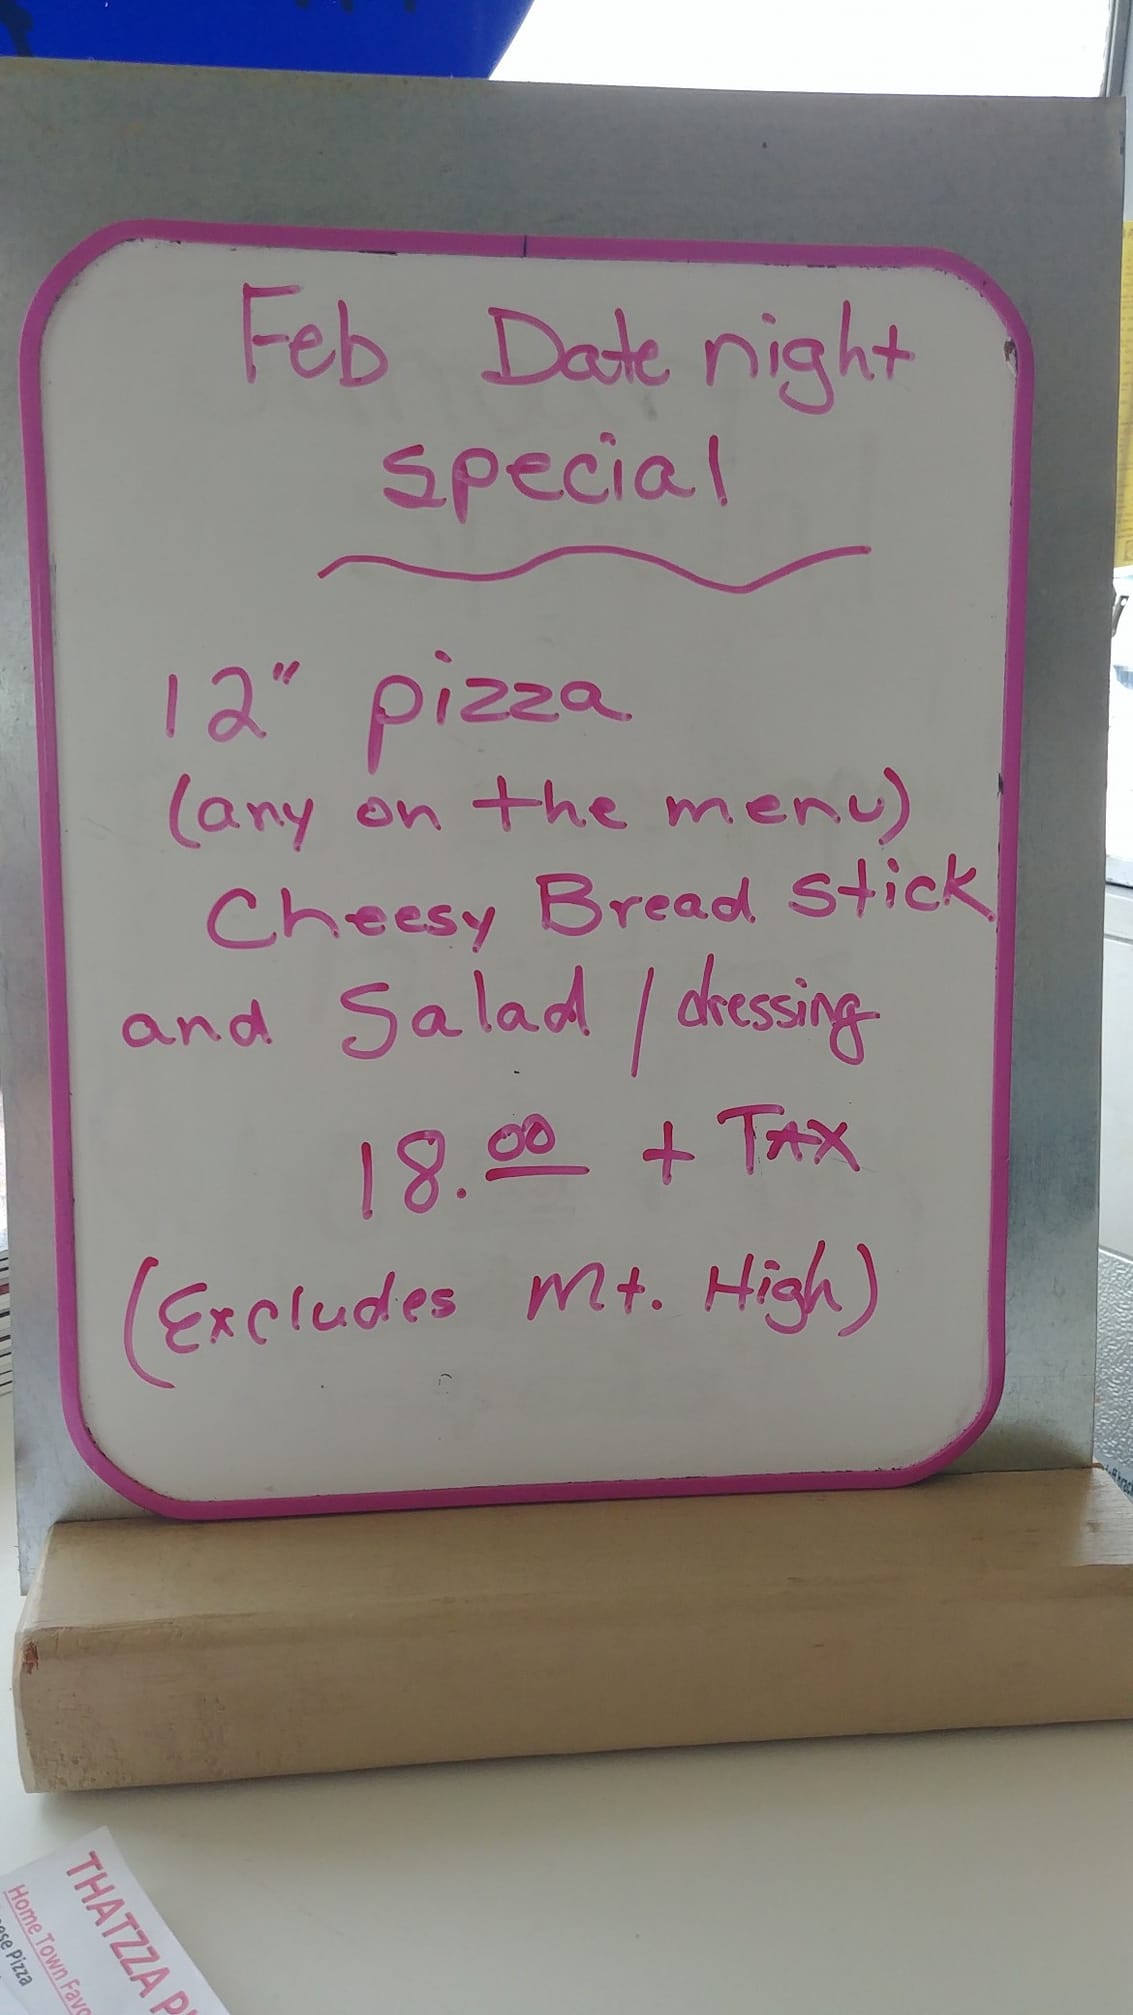 Feb Date night
special
12" pizza
(any on the menu)
Cheesy Bread stick
and Salad / dressing
18.00 + TAX
(Excludes Mt. High)
THATZZA
Home Town
Pizza